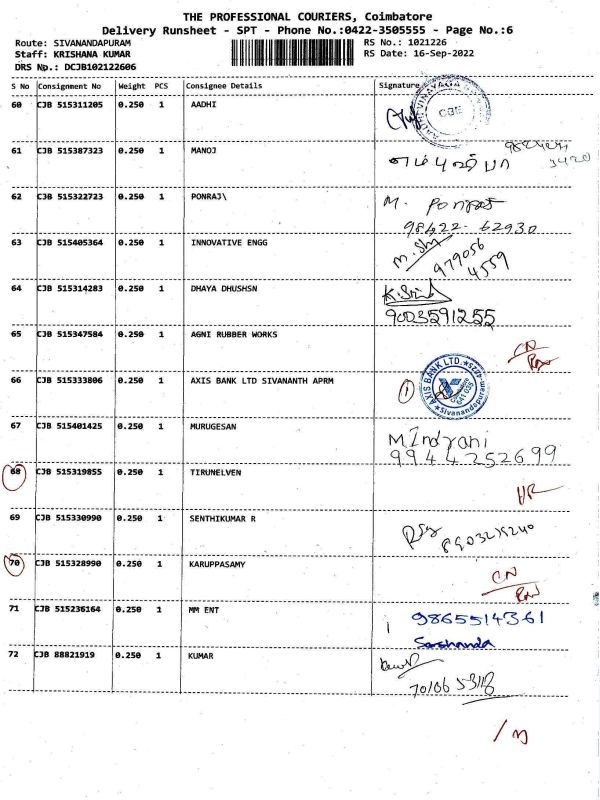 THE PROFESSIONAL COURIERS, Coimbatore
Delivery Runsheet - SPT - Phone No.:0422-3505555 - Page No.:6
Route: SIVANANDAPURAM RS No.: 1021226
Staff: KRISHANA KUMAR RS Date: 16-Sep-2022
DRS No.: DCJB102122606
S No Consignment No Weight PCS Consignee Details Signature
60 CJB 515311205 0.250 1 AADHI
CBE
61 CJB 515387323 0.250 1 MANOJ
62 CJB 515322723 0.250 1 PONRAJ\ M. Ponraj
98422-62930
63 CJB 515405364 0.250 1 INNOVATIVE ENGG
979056
4559
64 CJB 515314283 0.250 1 DHAYA DHUSHSN
9003591255
65 CJB 515347584 0.250 1 AGNI RUBBER WORKS
CN
66 CJB 515333806 0.250 1 AXIS BANK LTD SIVANANTH APRM 1
AXIS BANK LTD. Sivanandapuram
67 CJB 515401425 0.250 1 MURUGESAN M.Indrani
9944252699
68 CJB 515319855 0.250 1 TIRUNELVEN
69 CJB 515330990 0.250 1 SENTHIKUMAR R
70 CJB 515328990 0.250 1 KARUPPASAMY CN
71 CJB 515236164 0.250 1 MM ENT 9865514361
72 CJB 88821919 0.250 1 KUMAR